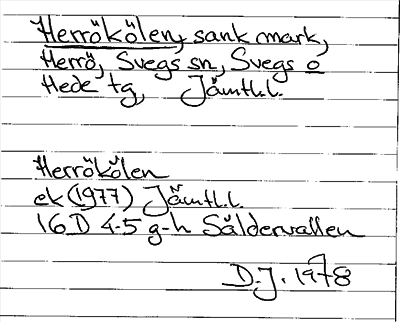 Herrökölen, sank mark,
Herrö, Svegs sn, Svegs o
Hede tg, Jämtl.l.
Herrökölen
ek (1977) Jämtl.l
16D 4-5 g-h Säldervallen
D.J. 1978